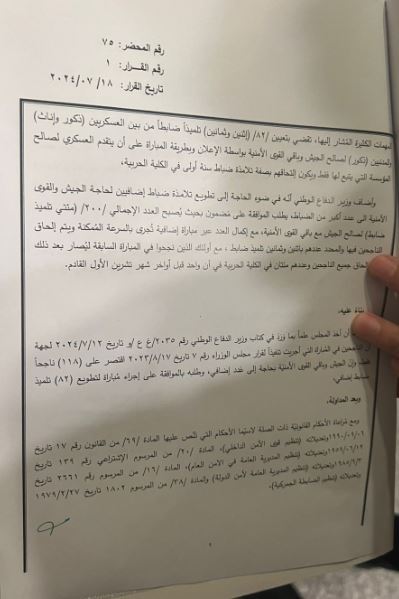 رقم المحضر: ٧٥
رقم القرار: ١
تاريخ القرار: ١٨/ ٠٧/ ٢٠٢٤
المهمات الكثيرة المُشار إليها، تقضي بتعيين /٨٢/ (إثنين وثمانين) تلميذاً ضابطاً من بين العسكريين (ذكور وإناث)
والمدنيين (ذكور) لصالح الجيش وباقي القوى الأمنية بواسطة الإعلان وبطريقة المباراة على أن يتقدم العسكري لصالح
المؤسسة التي يتبع لها فقط ويكون إلتحاقهم بصفة تلامذة ضباط سنة أولى في الكلية الحربية،
وأضاف وزير الدفاع الوطني أنّه في ضوء الحاجة إلى تطويع تلامذة ضباط إضافيين لحاجة الجيش والقوى
الأمنية الى عدد أكبر من الضباط، يطلب الموافقة على مضمون بحيث يُصبح العدد الإجمالي /٢٠٠/ (مئتي تلميذ
ضابط) لصالح الجيش مع باقي القوى الأمنية، مع إكمال العدد عبر مباراة إضافية تُجرى بالسرعة المُمكنة ويتم إلحاق
الناجحين فيها والمحدد عددهم باثنين وثمانين تلميذ ضابط ، مع أولئك الذين نجحوا في المباراة السابقة ليُصار بعد ذلك
إلحاق جميع الناجحين وعددهم مئتان في الكلية الحربية في آن واحد قبل أواخر شهر تشرين الأول القادم.
عليه،
أن أخذ المجلس علماً بما ورد في كتاب وزير الدفاع الوطني رقم ٢٠٣٥/غ ع /و تاريخ ٢٠٢٤/٧/١٢ لجهة
أن الناجحين في المُباراة التي أُجريت تنفيذاً لقرار مجلس الوزراء رقم ٧ تاريخ ٢٠٢٣/٨/١٧ اقتصر على (١١٨) ناجحاً
وإنّ الجيش وباقي القوى الأمنيّة بحاجة إلى عدد إضافي، وطلبه بالموافقة على إجراء مُباراة لتطويع (٨٢) تلميذ
ضابط إضافي.
وبعد المداولة،
ومع مُراعاة الأحكام القانونيّة ذات الصلة لاسيّما الأحكام التي تنُص عليها المادة /٦٩/ من القانون رقم ١٧ تاريخ
١٩٩٠/٠٩/٠٦ وتعديلاته (تنظيم قوى الأمن الداخلي)، المادة /٢٠/ من المرسوم الإشتراعي رقم ١٣٩ تاريخ
١٩٥٩/٠٦/١٢ وتعديلاته (تنظيم المديرية العامة في الأمن العام)، المادة /١٦/ من المرسوم رقم ٢٦٦١ تاريخ
١٩٨٥/٩/٣ وتعديلاته (تنظيم المديرية العامة لأمن الدولة) والمادة /٣٨/ من المرسوم ١٨٠٢ تاريخ ١٩٧٩/٢/٢٧
وتعديلاته (تنظيم الضابطة الجمركية)،